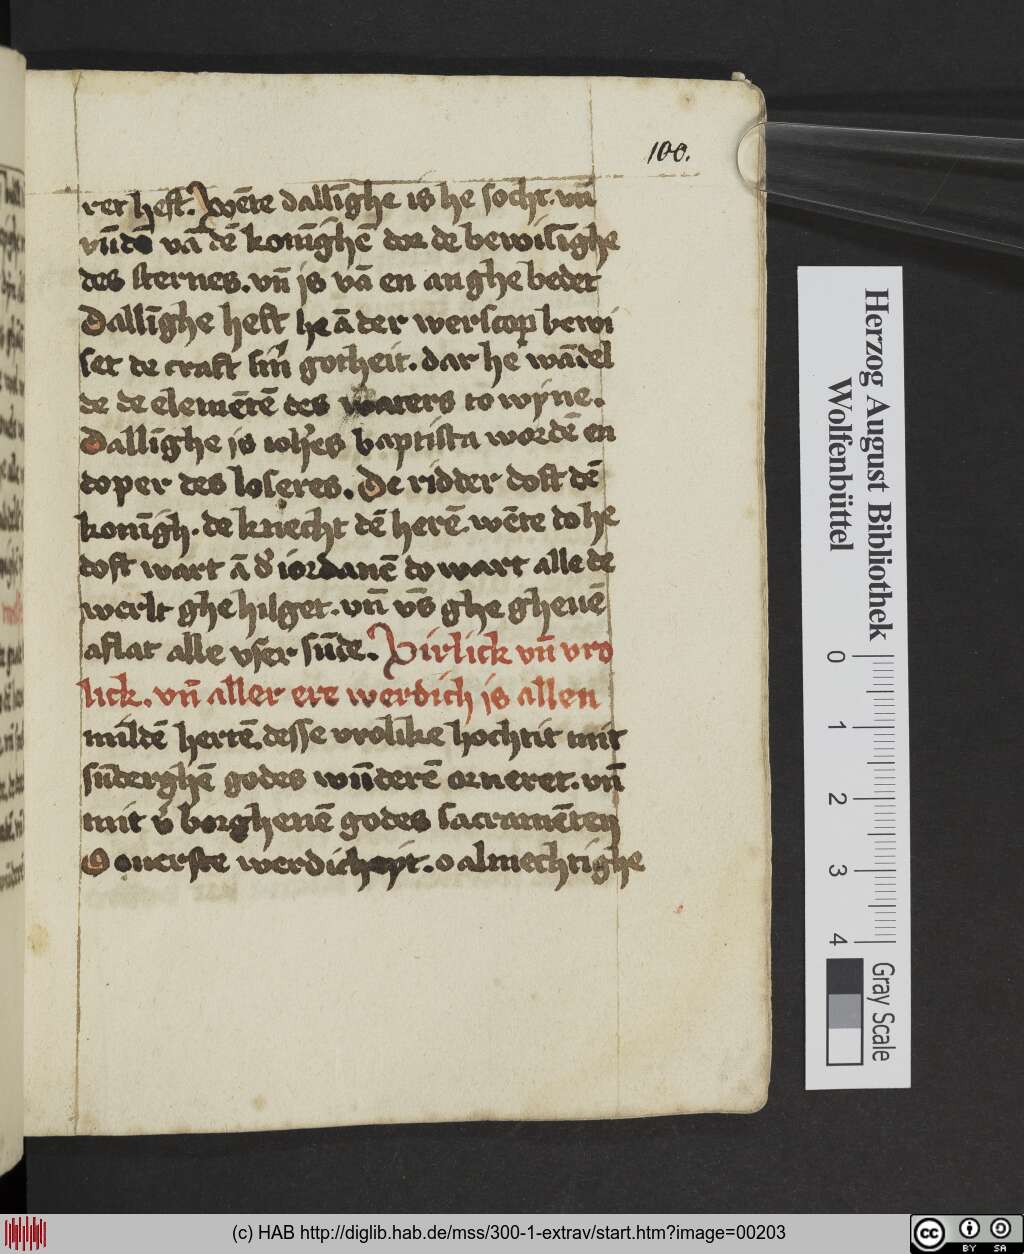 100.
ret heft. wēte dallīghe is he socht. vn̄
vn̄dē vā dē konīghē dor de bewisīghe
des sternes. vn̄ js vā en an ghe bedet
Dallīghe heft he ā der werscop bewi
set de craft sin̄ gotheit. dar he wādel
de de elemētē des waters to wyne.
Dallīghe js ioh̄es baptista wordē en
doper des loseres. De ridder doft dē
konīgh. de knecht dē herē. wēte do he
doft wart ā d' iordanē do wart alle de
werlt ghe hilget. vn̄ vs̄ ghe gheuē
aflat alle vser sūde. Virlick vn̄ vro
lick. vn̄ aller ere werdich js allen
mildē hertē. desse vrolike hochtit mit
sūderghē godes wūderē orneret. vn̄
mit v' borghenē godes sacramēten
O ouerste werdicheyt. o almechtighe
Herzog August Bibliothek
Wolfenbüttel
0 1 2 3 4
Gray Scale
(c) HAB http://diglib.hab.de/mss/300-1-extrav/start.htm?image=00203
cc BY SA